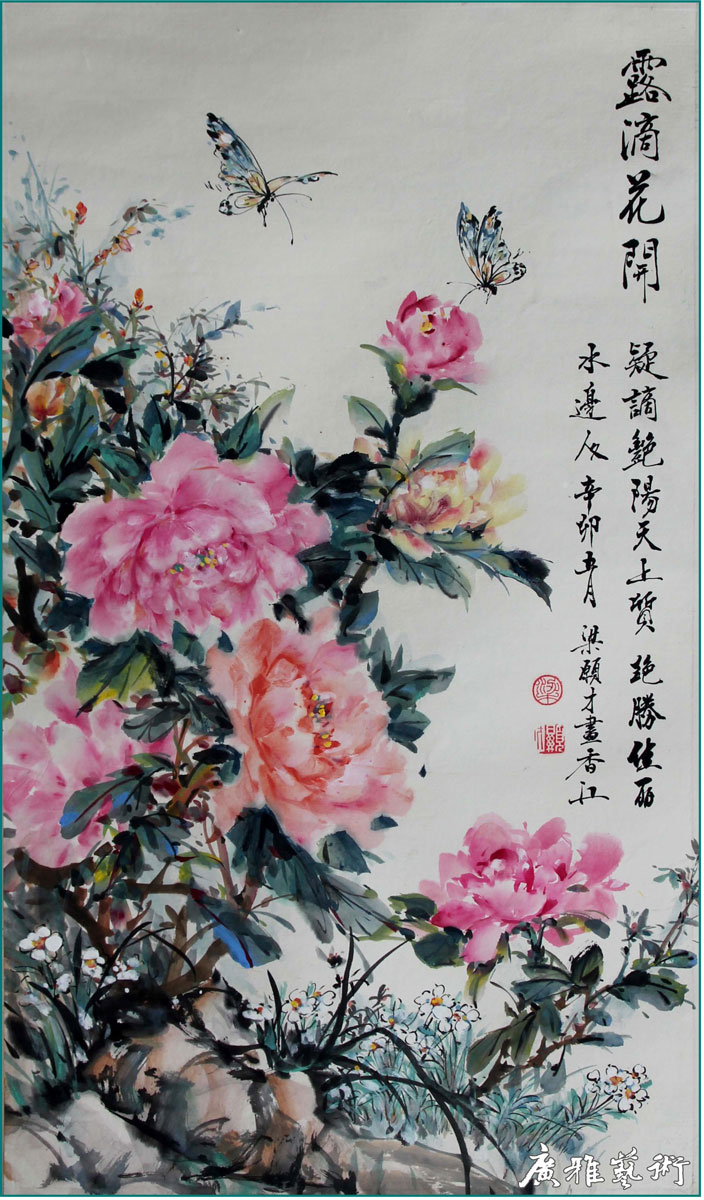 露滴花開
疑謫艷陽天上質 絶勝佳麗
水邊人 辛卯五月 梁願才畫香江
梁
廣雅藝術